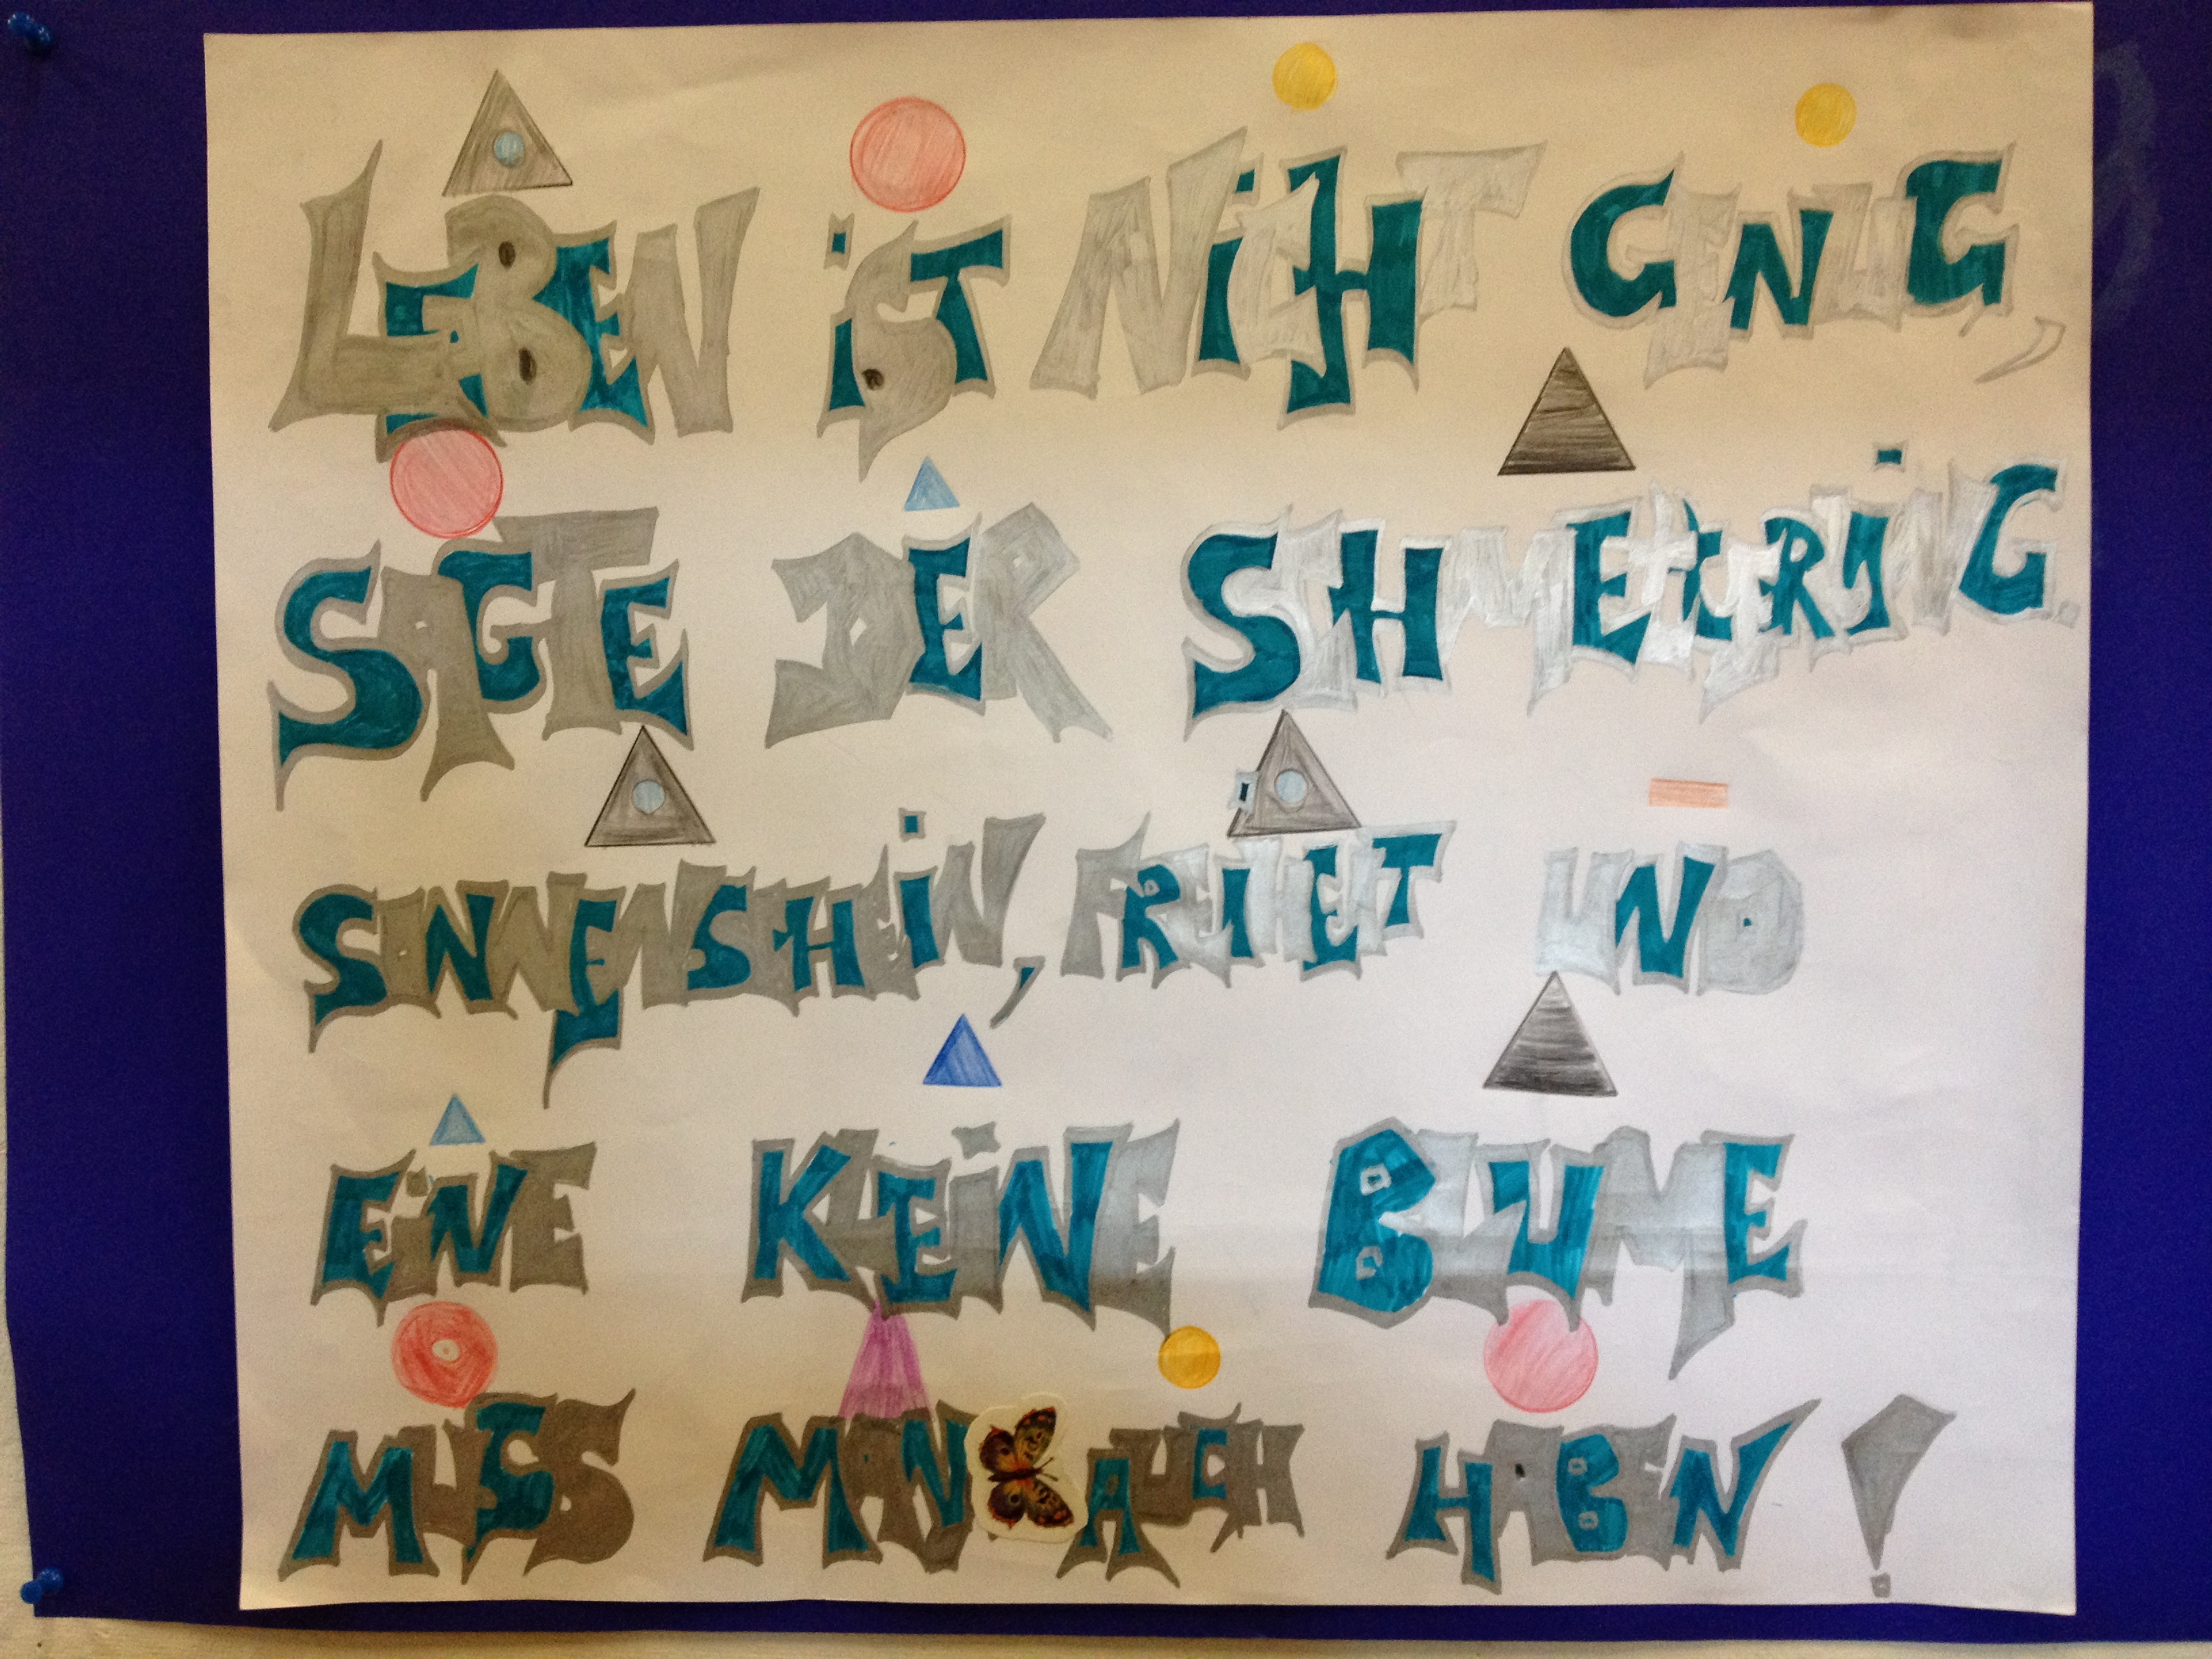 LEBEN iST NiCHT GENUG,
SAGTE DER SCHMETTERLiNG.
SONNENSCHEiN, FREiHEIT UND
EiNE KLEiNE BLUME
MUSS MAN AUCH HABEN!